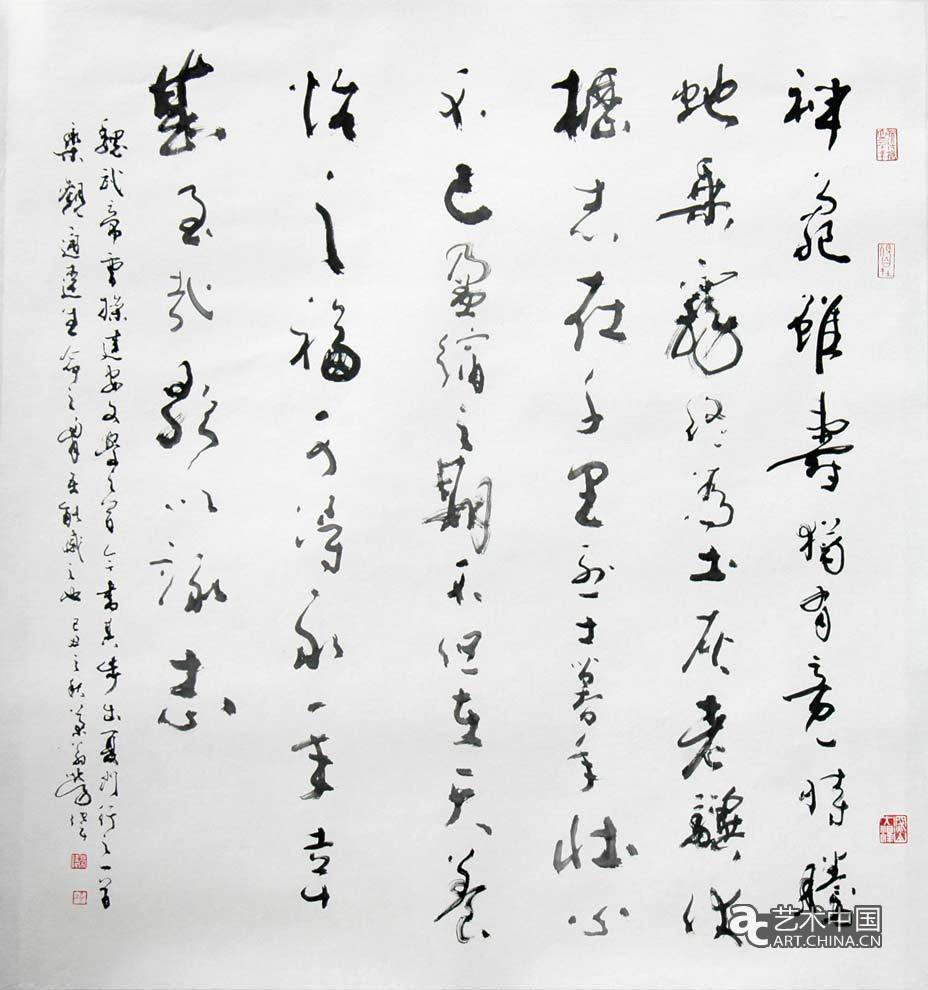 神龜雖壽猶有竟時騰
蛇乘霧終為土灰老驥伏
櫪志在千里烈士暮年壯心
不已盈縮之期不但在天養
怡之福可得永年幸
甚至哉歌以詠志
魏武帝曹操建安文學之首今書其步出夏門行之一首
樂觀通達生命之能感之也己丑之秋
ac 艺术中国
ART.CHINA.CN